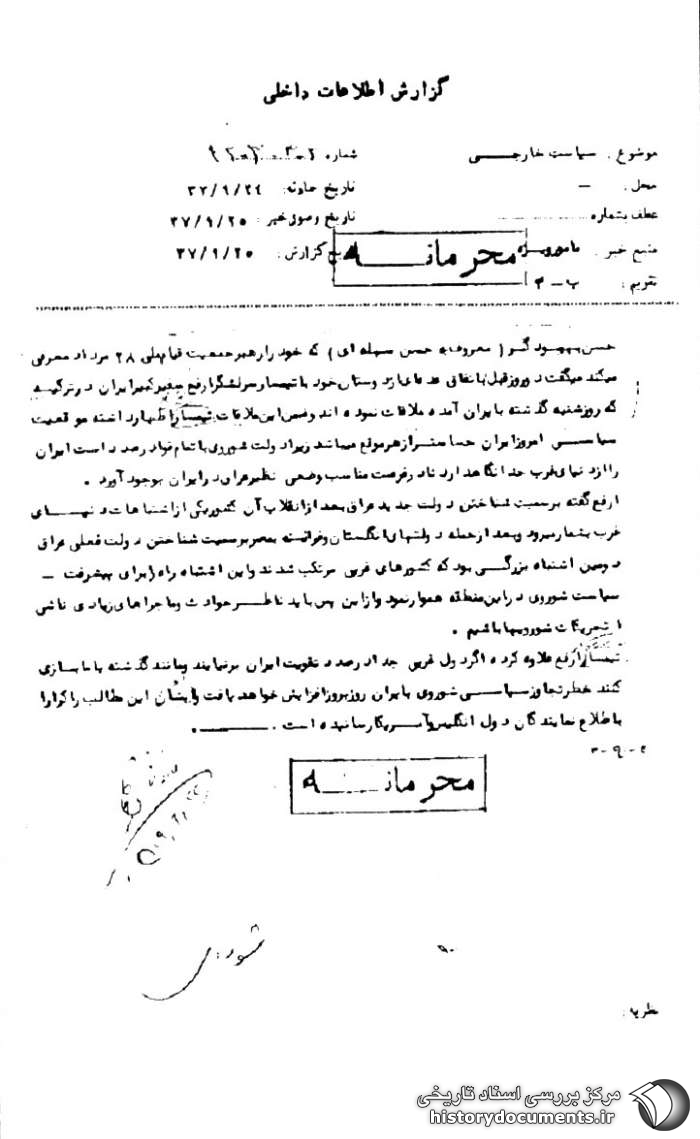 گزارش اطلاعات داخلی
موضوع . سیاست خارجی
شماره
محل . –
تاریخ حادثه: ۳۷/۹/۲۴
عطف بشماره
تاریخ وصول خبر : ۳۷/۹/۲۵
منبع خبر . مامور ویژه
تاریخ گزارش : ۳۷/۹/۲۵
محرمانه
تقویم : ب – ۳
حسن بهبودگو ( معروف به حسن سبیله ای ) که خود را رهبر جمعیت قیام ملی ۲۸ مرداد معرفی
میکند میگفت دو روز قبل باتفاق عده‌ای از دوستان خود با تیمسار سرلشگر ارفع سفیر کبیر ایران در ترکیه
که روز شنبه گذشته بایران آمده ملاقات نموده اند و ضمن این ملاقات تیمسار اظهار داشته موقعیت
سیاسی امروز ایران حساستر از هر موقع میباشد زیرا دولت شوروی با تمام قوا در صدد است ایران
را از دنیای غرب جدا نگاهدارد تا در فرصت مناسب وضعی نظیر عراق در ایران بوجود آورد .
ارفع گفته برسمیت شناختن دولت جدید عراق بعد از انقلاب آن کشور یکی از اشتباهات دنیای
غرب بشمار میرود و بعد از حمله دولتهای انگلستان و فرانسه بمصر برسمیت شناختن دولت فعلی عراق
دومین اشتباه بزرگی بود که کشورهای غربی مرتکب شدند و این اشتباه راه را برای پیشرفت –
سیاست شوروی در این منطقه هموار نمود و از این پس باید ناظر حوادث و ماجراهای زیادی ناشی
از تحریکات شورویها باشیم .
تیمسار ارفع علاوه کرده اگر دول غربی جدا در صدد تقویت ایران برنیایند و مانند گذشته با ما بازی
کنند خطر تجاوز سیاسی شوروی بایران روز بروز افزایش خواهد یافت و ایشان این مطالب را کرارا
باطلاع نمایندگان دول انگلیس و آمریکا رسانیده است .
۳-۹-۲
محرمانه
شوروی
۹۰
نظریه :
مرکز بررسی اسناد تاریخی
historydocuments.ir